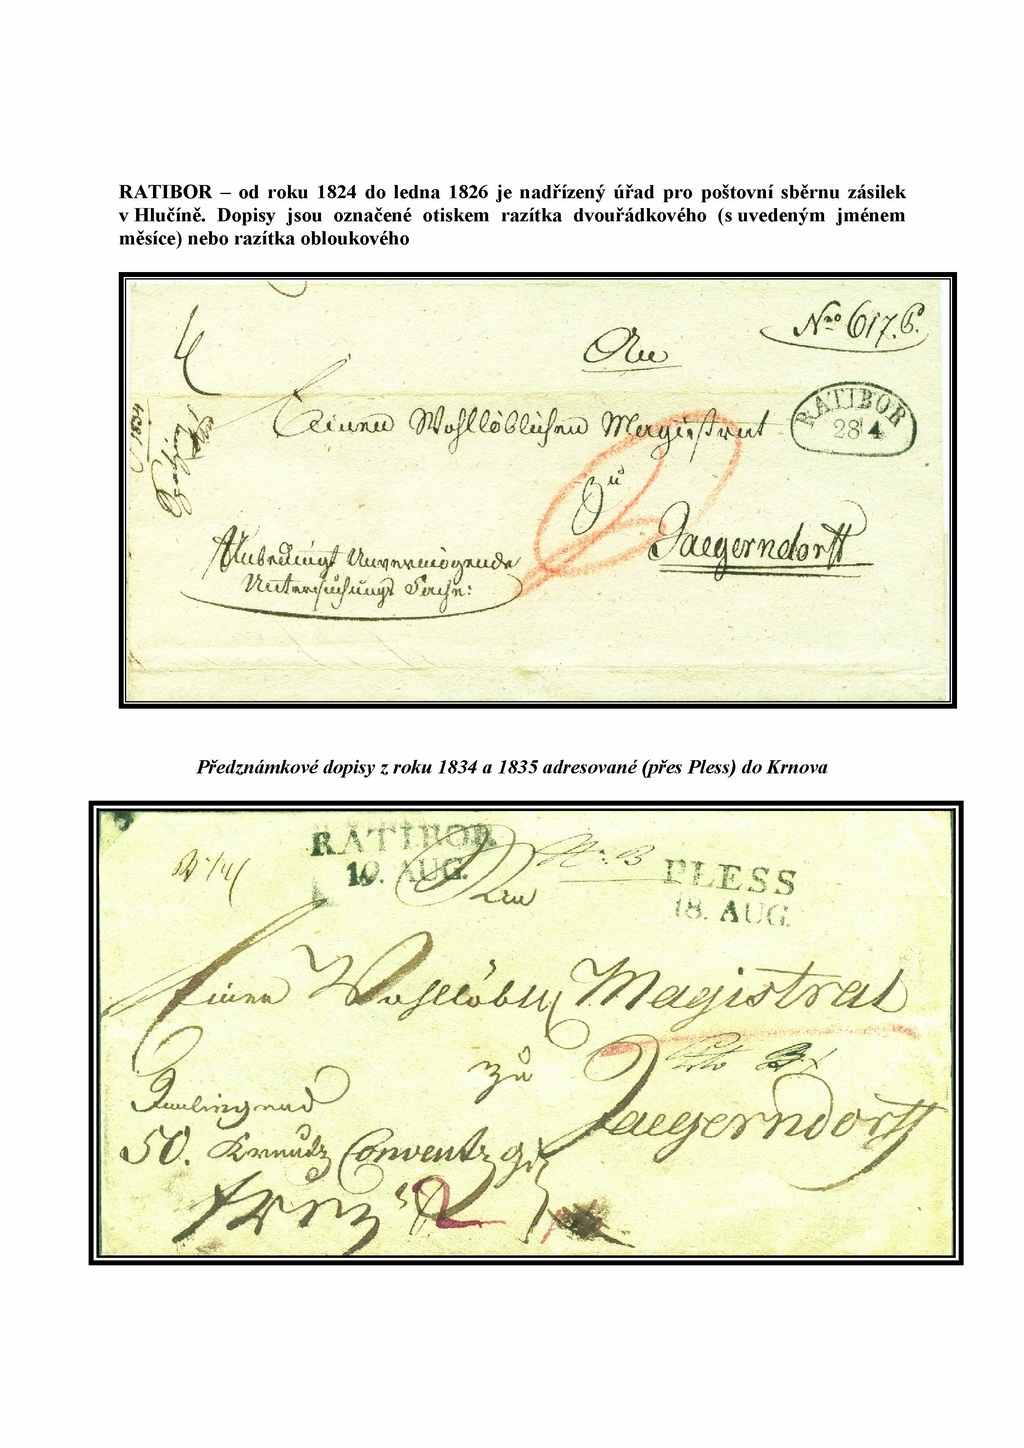 RATIBOR – od roku 1824 do ledna 1826 je nadřízený úřad pro poštovní sběrnu zásilek
v Hlučíně. Dopisy jsou označené otiskem razítka dvouřádkového (s uvedeným jménem
měsíce) nebo razítka obloukového
An
Nro 617.
Einen Wohllöblichen Magistrat
RATIBOR
28 4
zu
Jaegerndorff
Unbedingt Unvermögende
Untersuchungs Sache:
Předznámkové dopisy z roku 1834 a 1835 adresované (přes Pless) do Krnova
RATIBOR
19. AUG.
An
PLESS
18. AUG.
Einen Wohllöbl Magistrat
zu
Jaegerndorff
50. Kreutz Convent